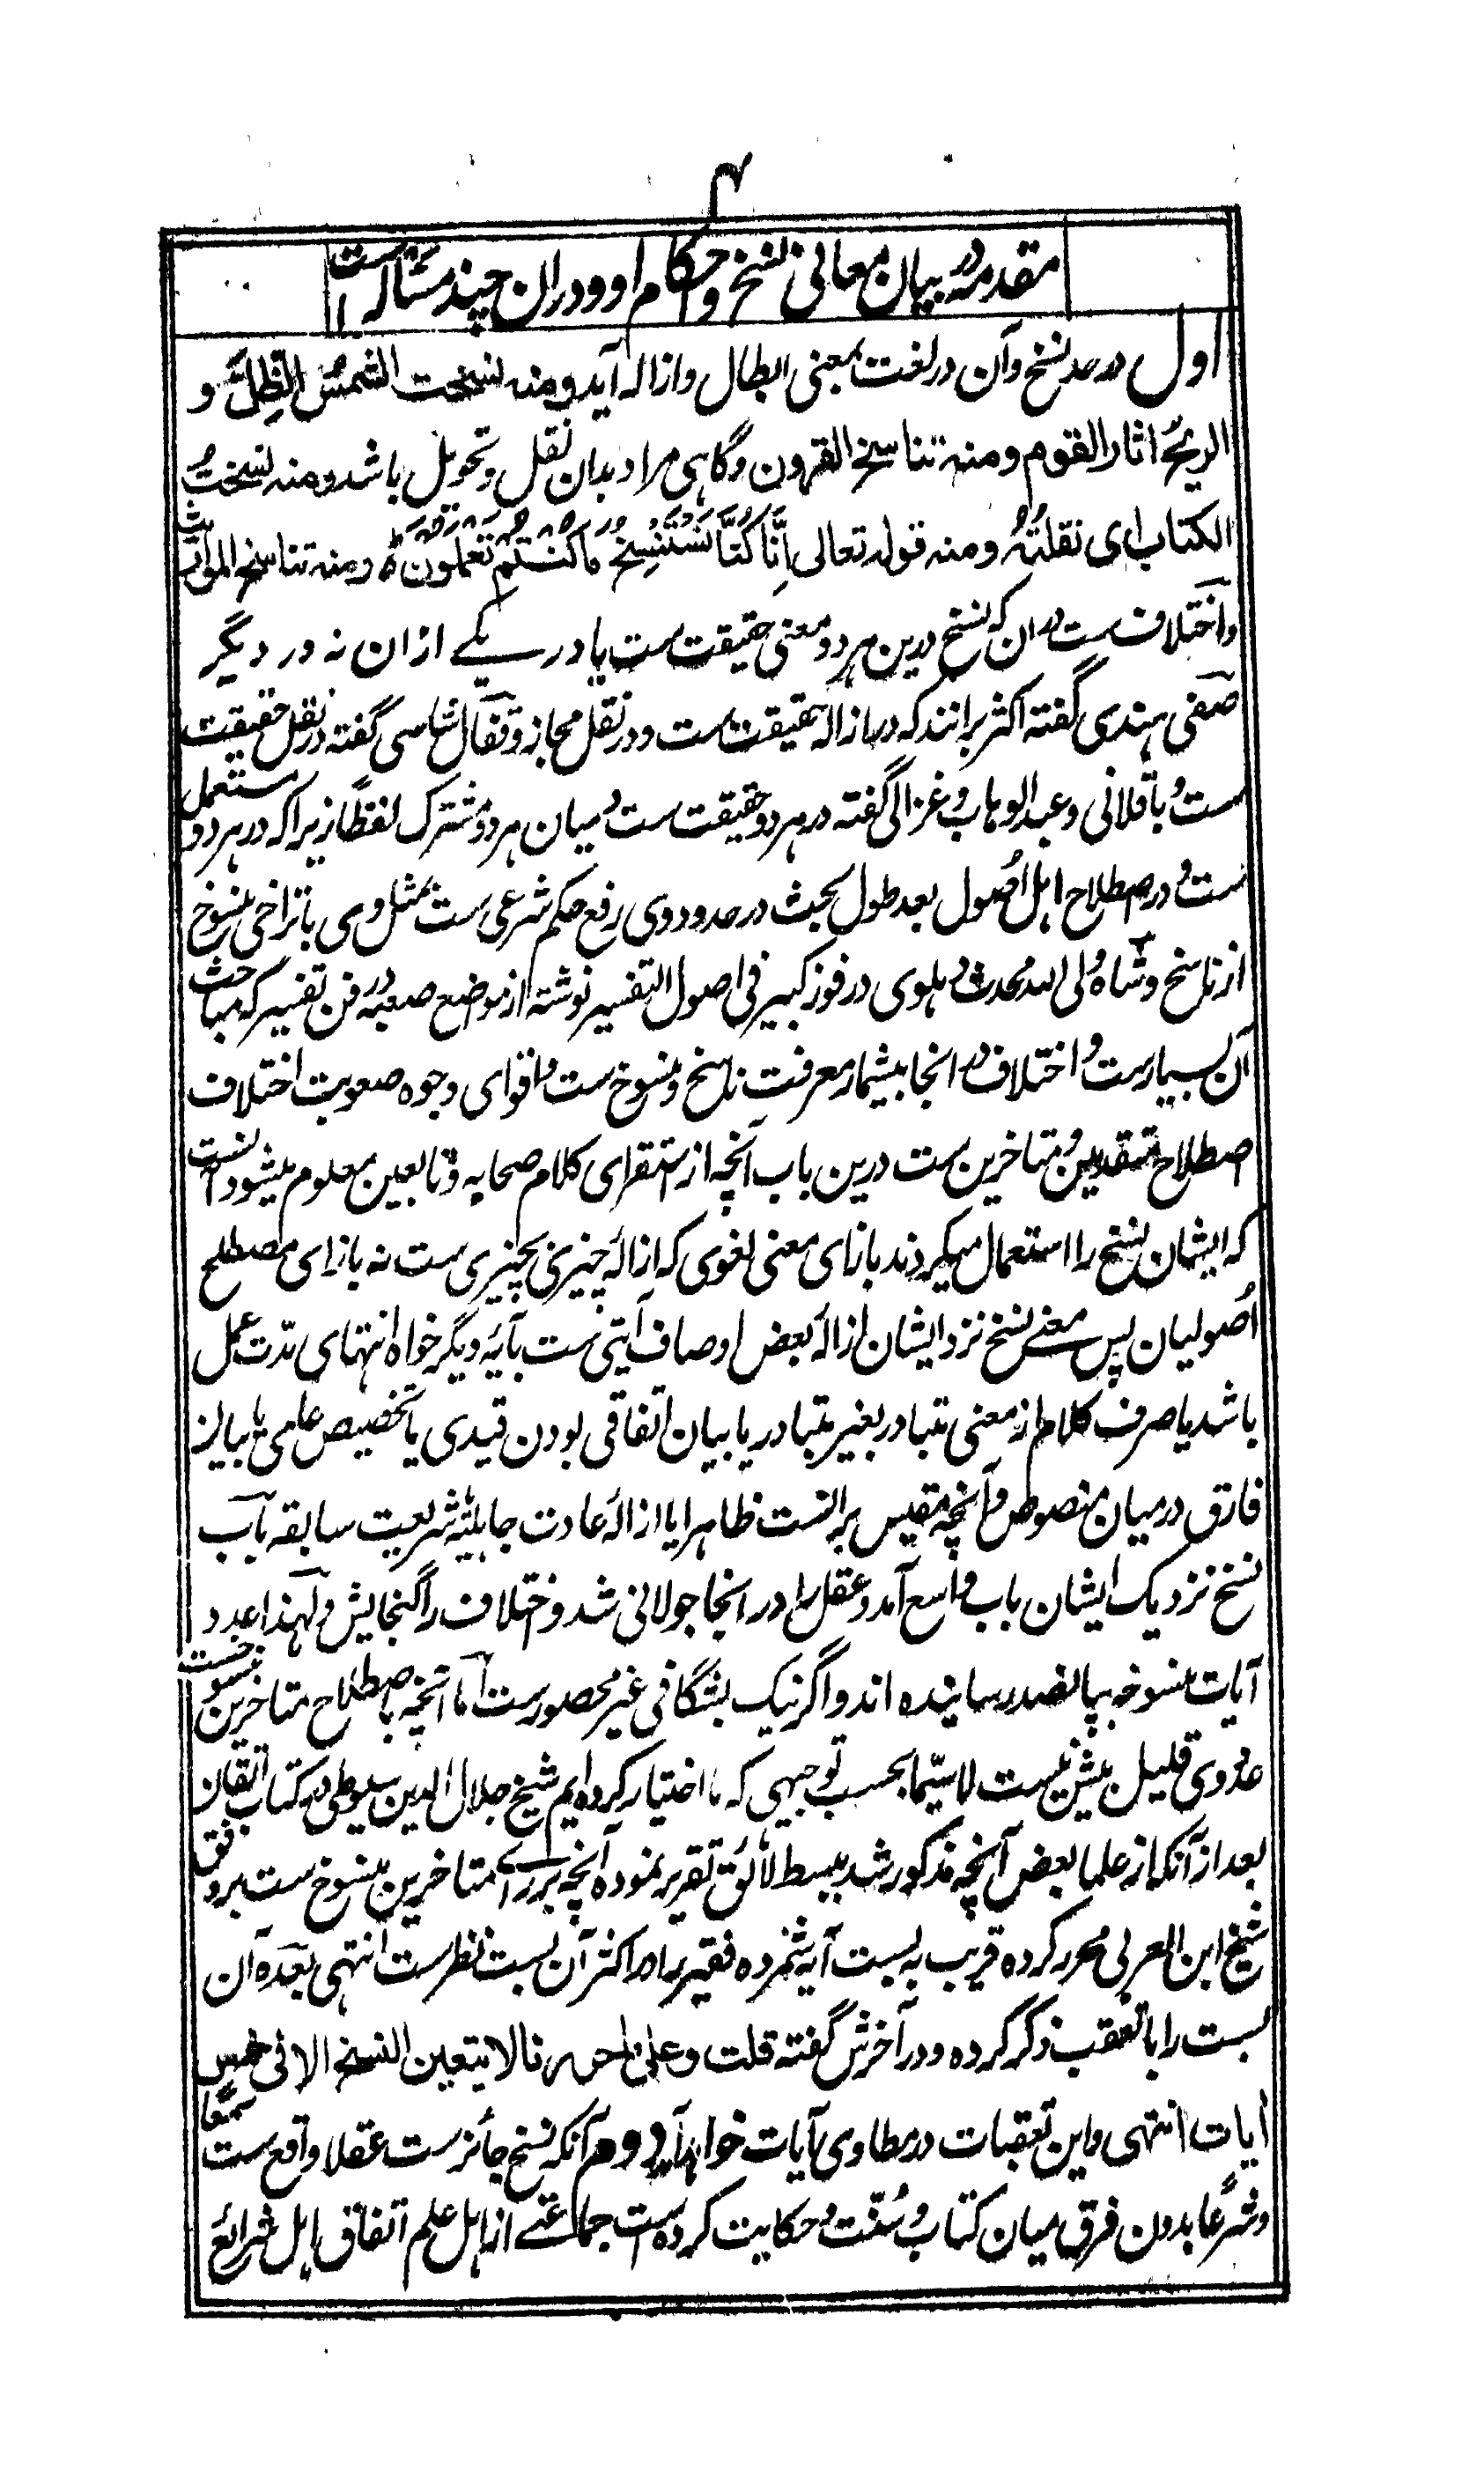 ۴
مقدمه در بیان معانی نسخ و احکام او و دران چند مسئاله است
اول در حد نسخ و آن در لغت بمعنی ابطال و ازاله آید و منه نسخت الشمس الظِلَّ و
الریحُ اثار القوم و منه تناسخ القرون و گاهی مراد بدان نقل و تحویل باشد و منه نسختُ
الکتاب ای نقلتُهُ و منه قوله تعالی اِنَّا کُنَّا نَسْتَنْسِخُ مَا کُنْتُمْ تَعْمَلُوْنَ ط و منه تناسخ المواریث
و اختلاف ست در ان که نسخ درین هر دو معنی حقیقت ست یا در یکے ازان نه در دیگر
صفی هندی گفته اکثر برانند که در ازاله حقیقت ست و در نقل مجاز و قفال شاسی گفته در نقل حقیقت
ست و باقلانی و عبدالوهاب و غزالی گفته در هر دو حقیقت ست و میان هر دو مشترک لفظًا زیراکه در هر دو مستعمل
ست و در اصطلاح اهل اصُول بعد طول بحث در حدود وی رفع حکم شرعی ست بمثل وی با تراخی منسوخ
از ناسخ و شاه ولی الله محدث دهلوی در فوز کبیر فی اصول التفسیر نوشته از موضع صعبه در فن تفسیر که مباحث
آن بسیارست و اختلاف در انجا بیشمار معرفت ناسخ و منسوخ ست و اقوای وجوه صعوبت اختلاف
اصطلاح متقدمین و متاخرین ست درین باب آنچه از استقرای کلام صحابه و تابعین معلوم میشود آنست
که ایشان نسخ را استعمال میکردند بازای معنی لغوی که ازالهٔ چیزی بچیزی ست نه بازای مصطلح
اُصولیان پس معنے نسخ نزد ایشان ازالهٔ بعض اوصاف آیتی ست بآیهٔ دیگر خواه انتهای مدّت عمل
باشد یا صرف کلام از معنی متبادر بغیر متبادر یا بیان اتفاقی بودن قیدی یا تخصیص عامی یا بیان
فارق درمیان منصوص و آنچه مقیس بر انست ظاهرا یا ازالهٔ عادت جاهلیت یا شریعت سابقه باب
نسخ نزدیک ایشان باب واسع آمد و عقل را در انجا جولانی شد و اختلاف را گنجایش و لهذا عدد
آیات منسوخه بپانصد رسانیده اند و اگر نیک بشگافی غیر محصورست اما آنچه باصطلاح متاخرین منسوخست
عددی قلیل بیش نیست لا سیّما بحسب توجیهی که ما اختیار کرده ایم شیخ جلال الدین سیوطی در کتاب اتقان
بعد از آنکه از علما بعض آنچه مذکور شد ببسط لائق تقریر نموده آنچه بر رائے متاخرین منسوخ ست بر وفق
شیخ ابن العربی محرر کرده قریب به بست آیه شمرده فقیر را در اکثر آن بست نظرست انتهی بعده آن
بست را با تعقب ذکر کرده و در آخرش گفته قلت و علی ما حررنا لا یتعین النسخ الا فی خمس
ایات انتهی و این تعقبات در مطاوی آیات خواهد آمد دوم آنکه نسخ جائز ست عقلا و واقع ست سمعًا
و شرعًا بدون فرق میان کتاب و سُنّت و حکایت کرده ست جماعتے از اهل علم اتفاق اهل شرائع